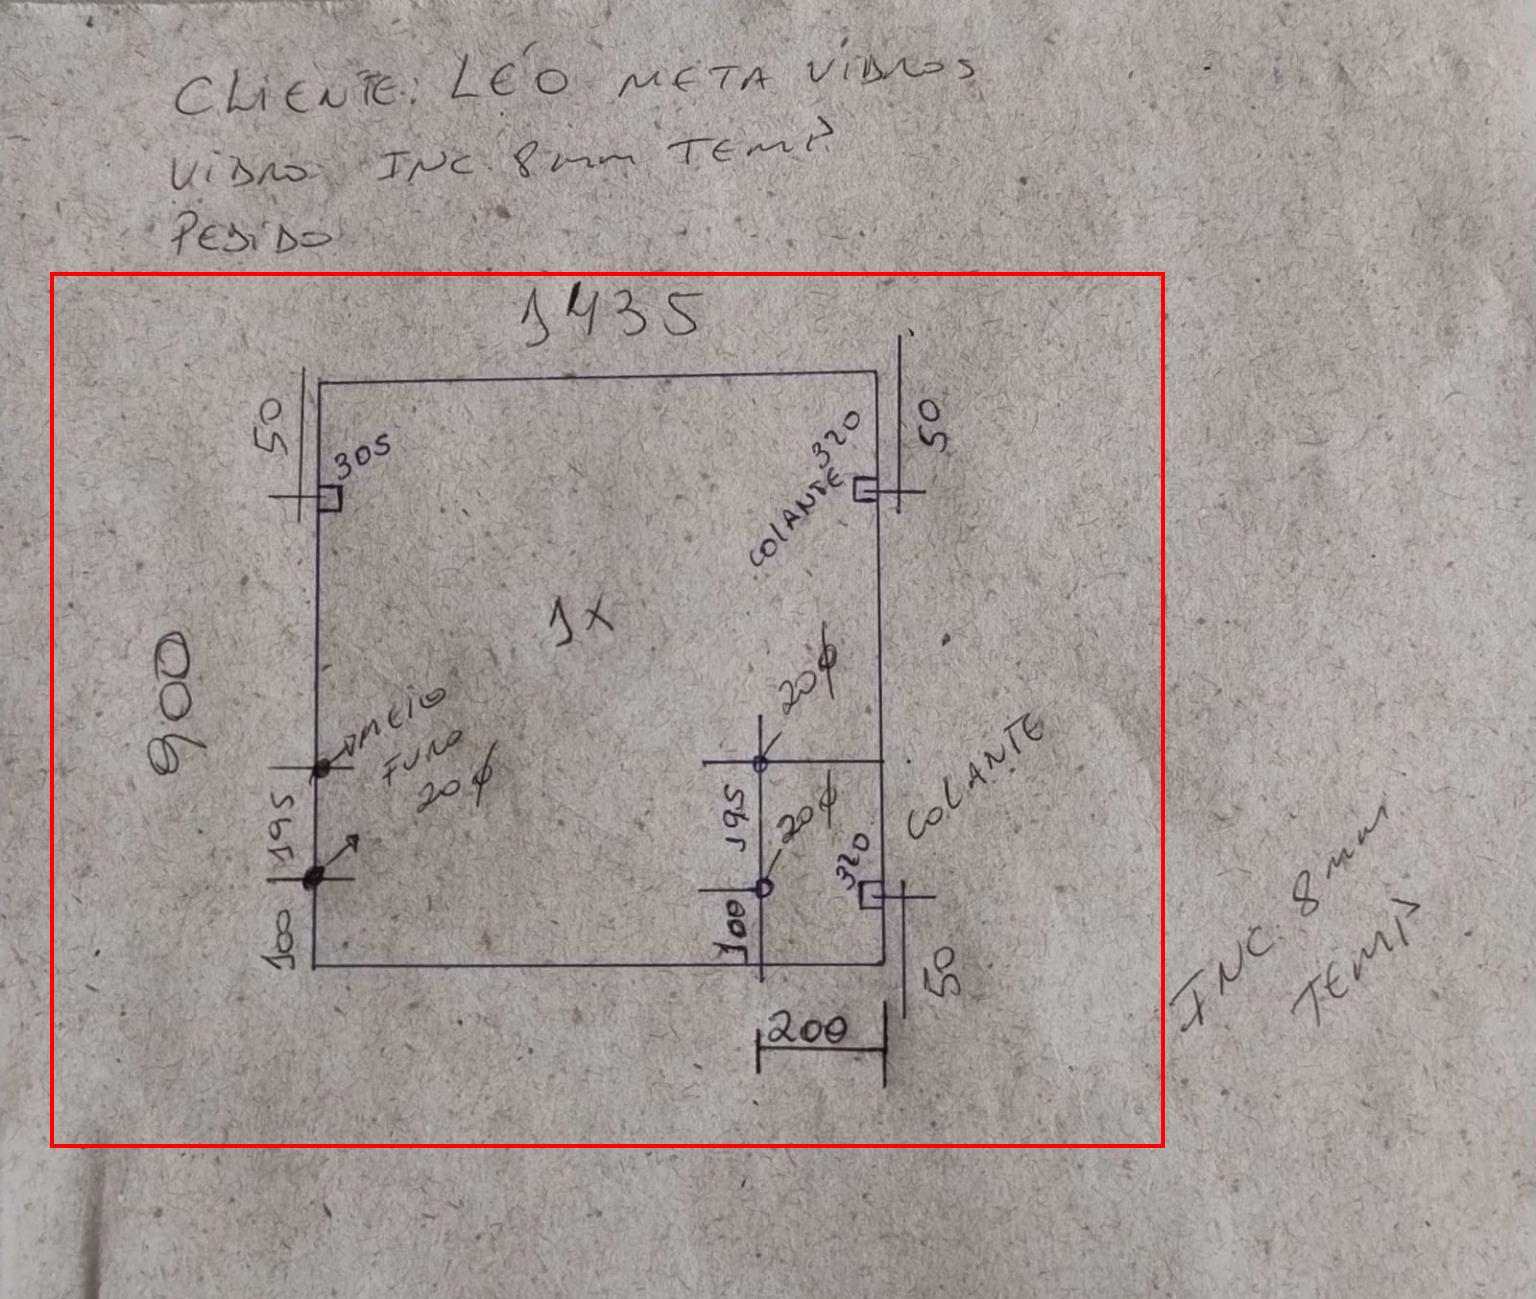 CLIENTE: LÉO META VIDROS
VIDRO INC. 8mm TEMP
PEDIDO
1435
50
305
320
COLANTE
50
1x
900
MEIO
FURO
20ϕ
195
100
20ϕ
195
20ϕ
100
320
COLANTE
50
200
INC. 8mm
TEMP